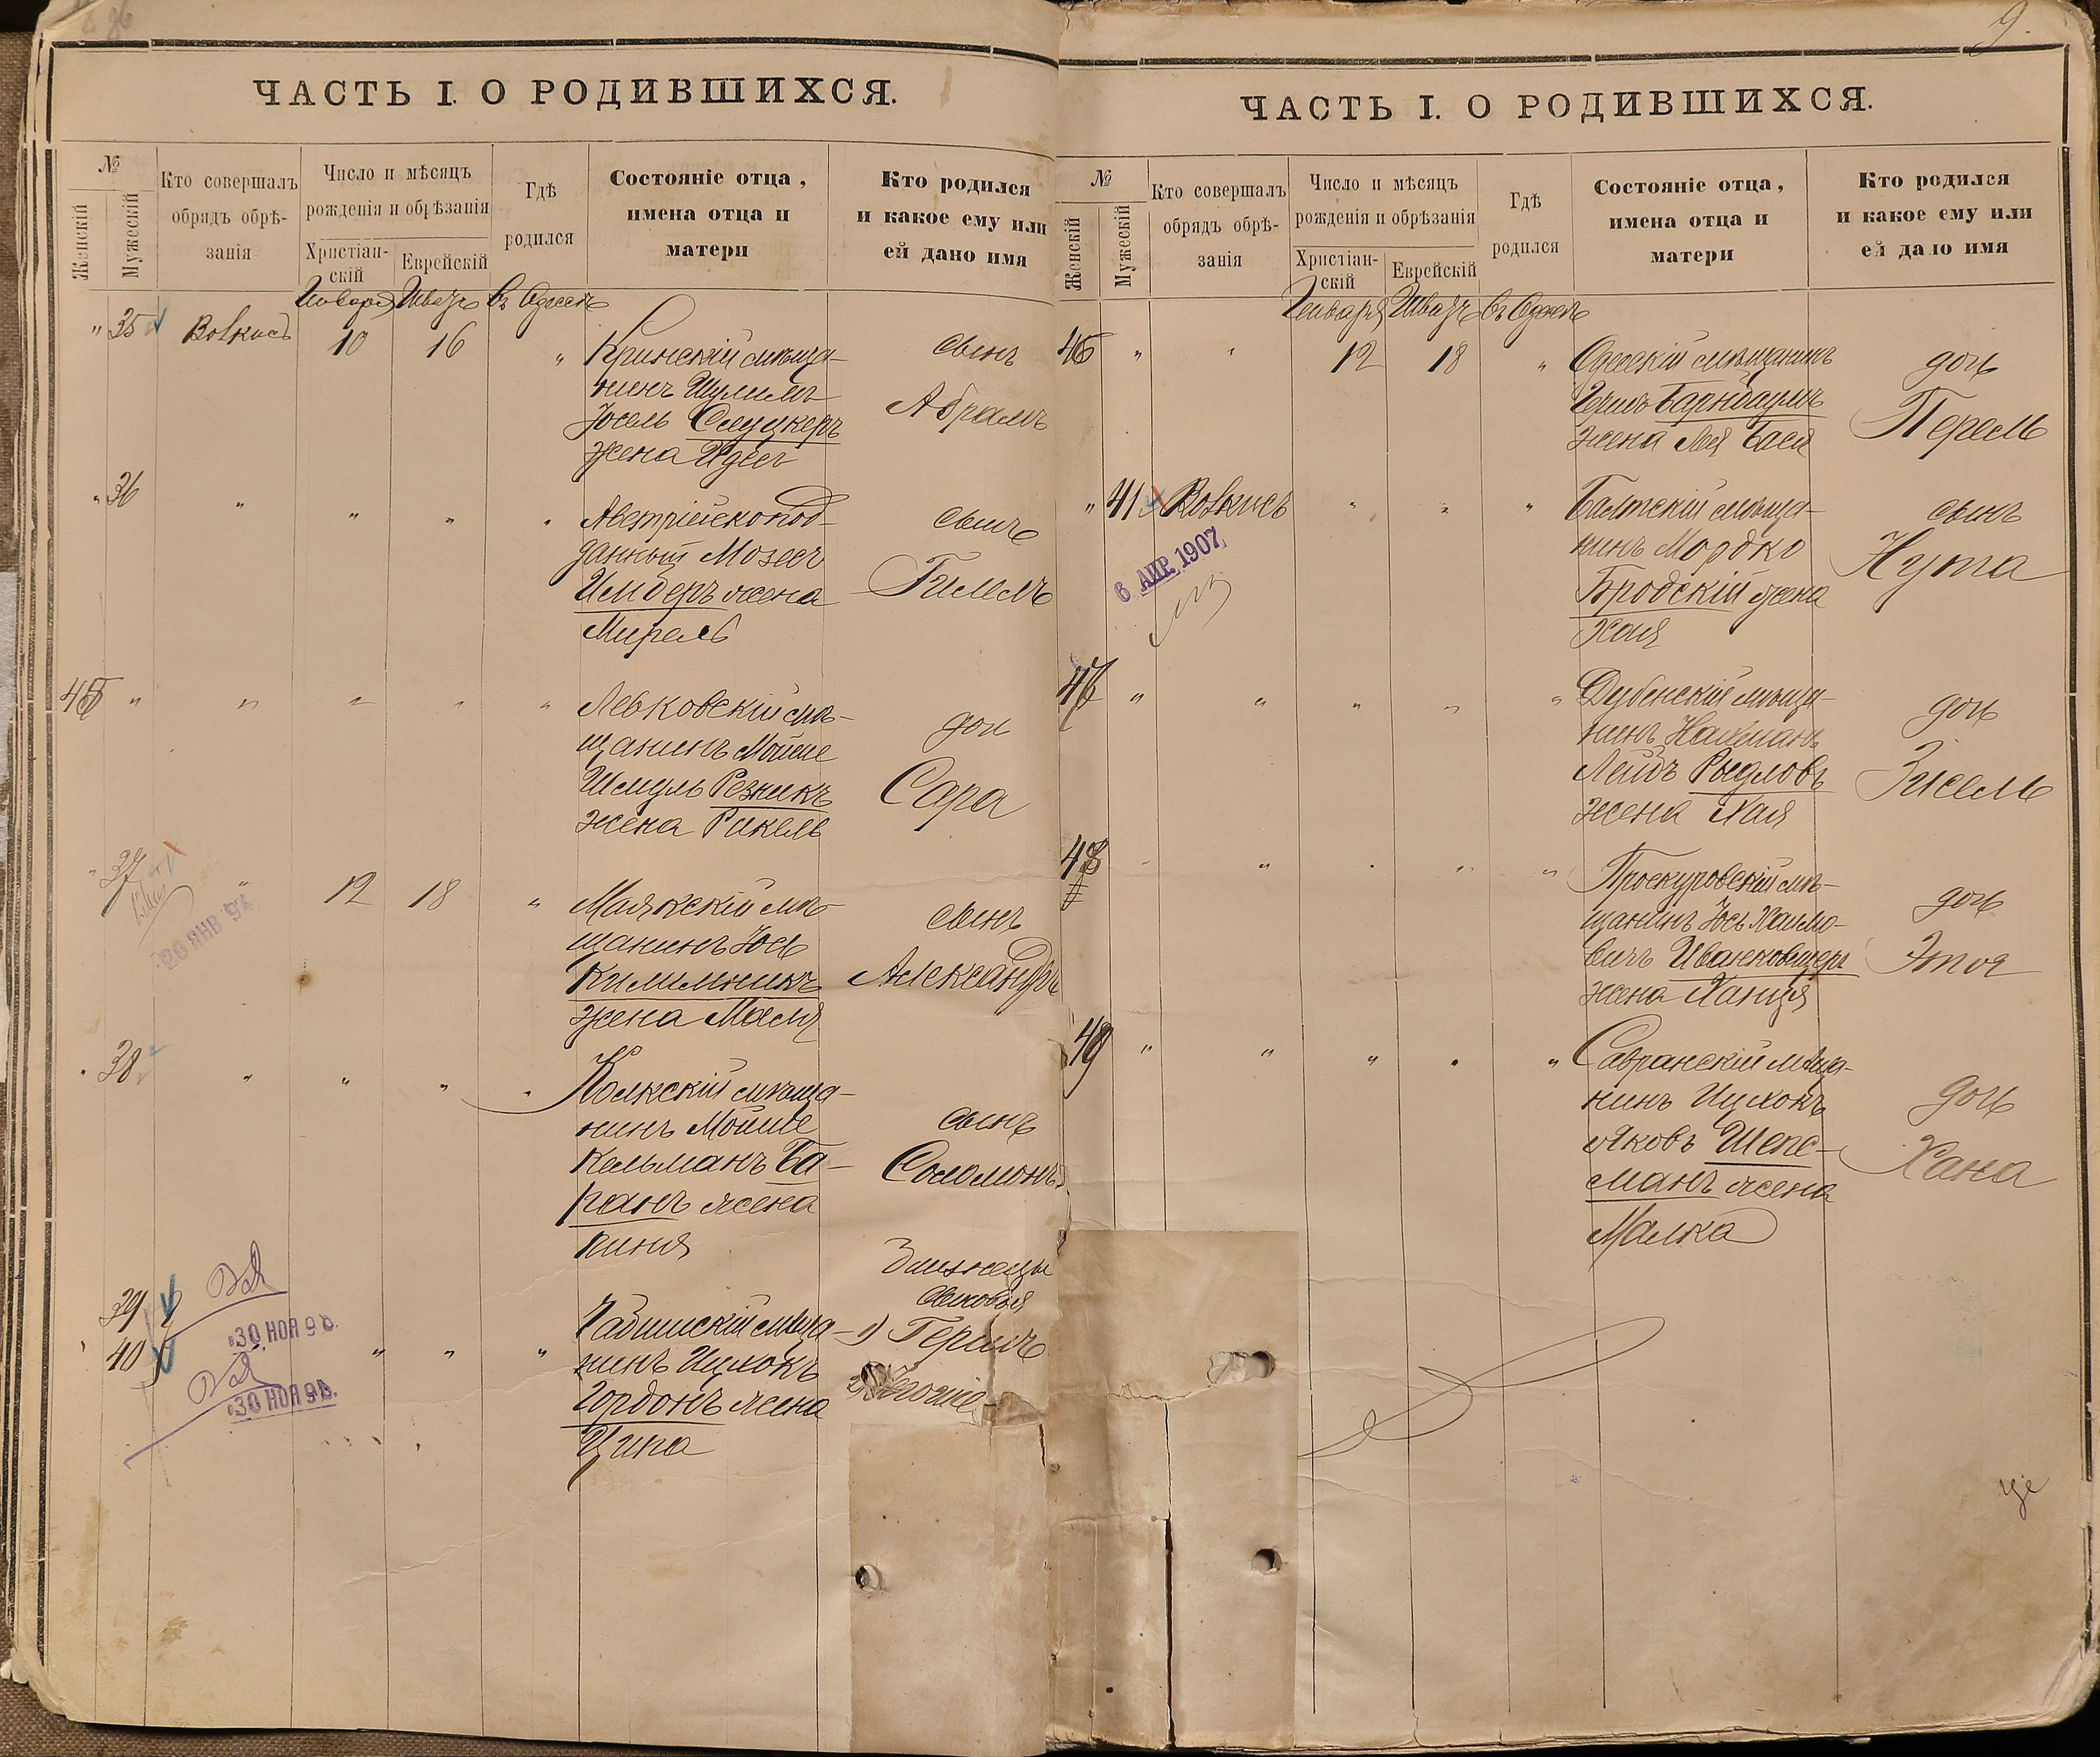 ЧАСТЬ I. О РОДИВШИХСЯ.
№
Женскій
Мужескій
Кто совершалъ
обрядъ обрѣ-
занія
Число и мѣсяцъ
рожденія и обрѣзанія
Христіан-
скій
Еврейскій
Гдѣ
родился
Состояніе отца,
имена отца и
матери
Кто родился
и какое ему или
ей дано имя
Января Шватъ въ Одессѣ
" 35 Вовкисъ 10 16 "
Кринскій мѣща-
нинъ Шулимъ
Іосель Слуцкеръ
жена Идес
сынъ
Абрамъ
" 36 " " " "
Австрійскопод-
данный Мозесъ
Имберъ жена
Мирель
сынъ
Гилелъ
" " " " "
Левковскій мѣ-
щанинъ Мойше
Шмуль Резникъ
жена Рикель
доч
Сара
" 37 " 12 18 "
20 ЯНВ 94
Маякскій мѣ-
щанинъ Іось
Килимникъ
жена Маля
сынъ
Александръ
" 38 " " " "
Колкскій мѣща-
нинъ Мойше
Кельманъ Ба-
ранъ жена
Киня
сынъ
Соломонъ
39
30 НОЯ 98.
" 40 " " "
30 НОЯ 98.
нинъ Ицхокъ
Гордонъ жена
Ципа
Близнецы
сыновья
1) Гершъ
2)
9.
ЧАСТЬ I. О РОДИВШИХСЯ.
№
Женскій
Мужескій
Кто совершалъ
обрядъ обрѣ-
занія
Число и мѣсяцъ
рожденія и обрѣзанія
Христіан-
скій
Еврейскій
Гдѣ
родился
Состояніе отца,
имена отца и
матери
Кто родился
и какое ему или
ей дано имя
Января Шватъ въ Одессѣ
" " 12 18 "
Одесскій мѣщанинъ
Барнбаумъ
жена Лея Бася
дочь
Перель
" 41 Вовкисъ " " "
6 АПР. 1907
Балтскій мѣща-
нинъ Мордко
Бродскій жена
Хая
сынъ
Нута
" " " " "
Дубенскій мѣща-
нинъ Нахманъ
Лейбъ Рыдловъ
жена Хая
дочь
Зисель
48 " " " " "
Проскуровскій мѣ-
щанинъ Іось Хаимо-
вичъ Иванковицеръ
жена Ханця
дочь
Этя
49 " " " " "
Савранскій мѣща-
нинъ Ицхокъ
Яковъ Шепс-
манъ жена
Малка
дочь
Хана